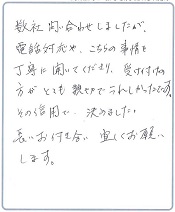 数社問い合わせしましたが、
電話対応や、こちらの事情を
丁寧に聞いてくださり、受け付けの
方がとても親切でうれしかったです。
その信用で、決めました。
長いお付き合い宜しくお願い
します。